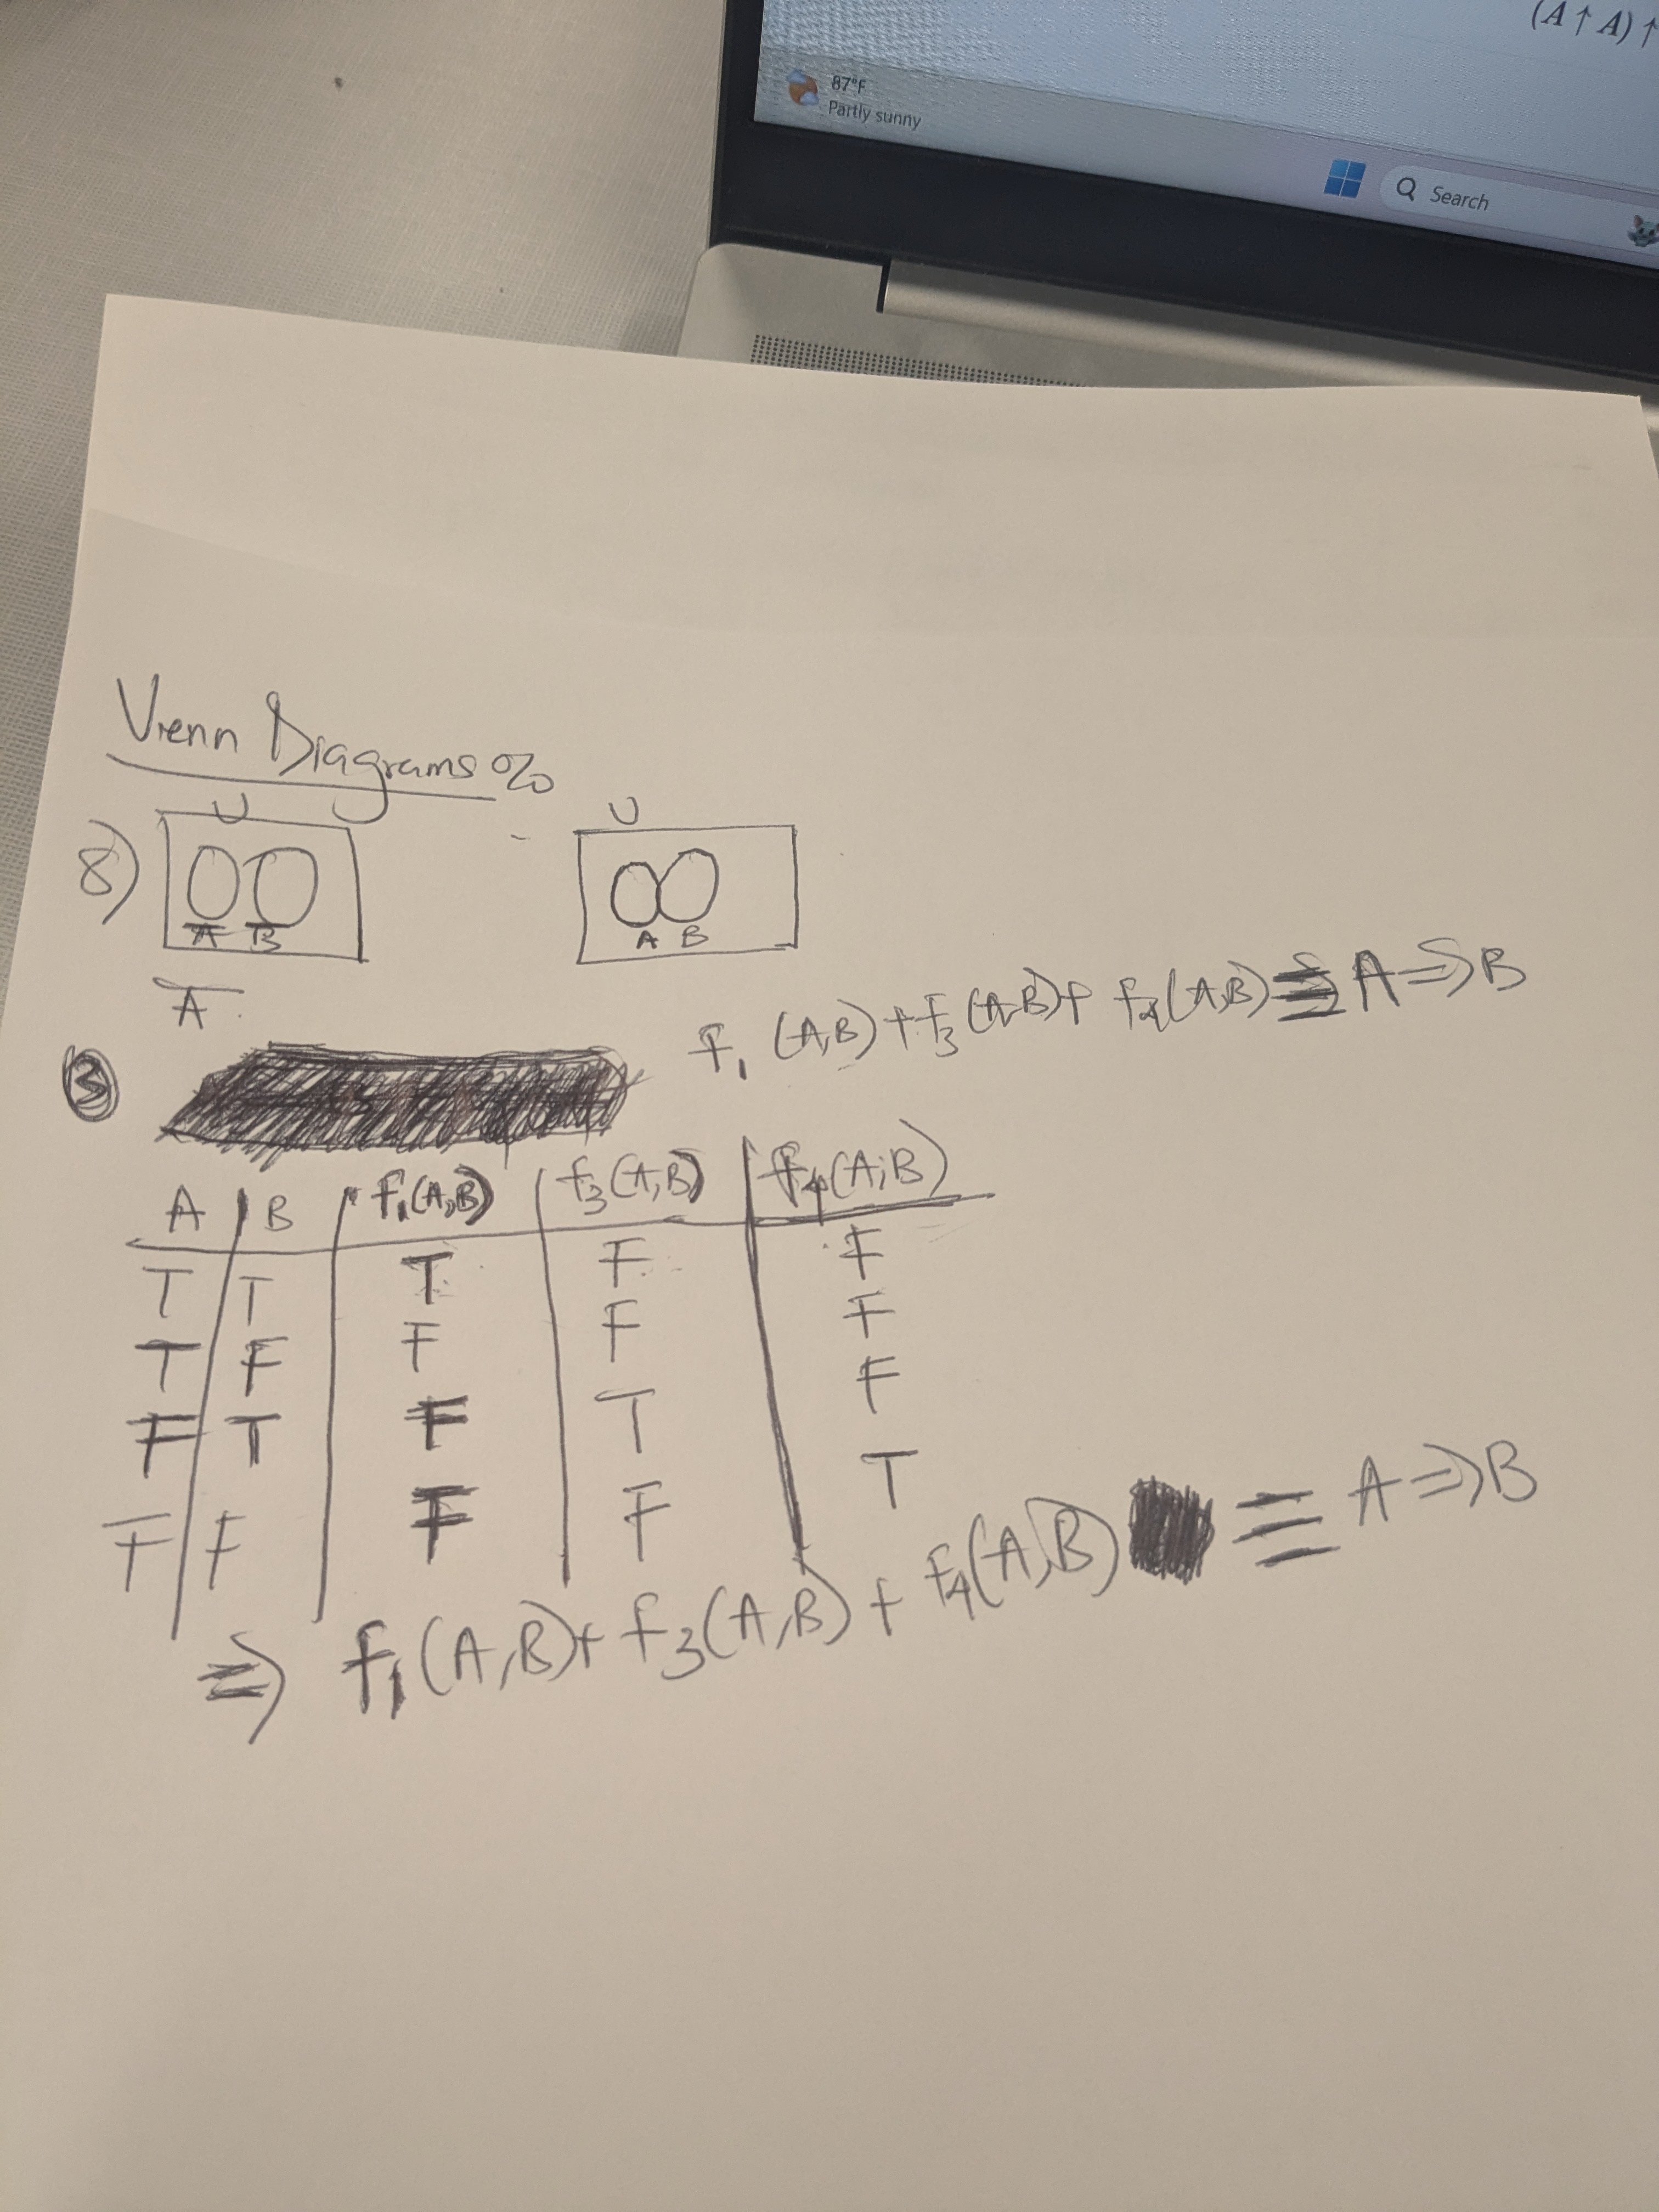 (A ↑ A) ↑
87°F
Partly sunny
Search
Vienn Diagrams :
U U
8)
A B A B
A
f₁ (A,B) + f₃ (A,B) + f₄(A,B) ≡ A ⇒ B
③
A B f₁(A,B) f₃(A,B) f₄(A,B)
T T T F F
T F F F F
F T F T F
F F F F T
⇒ f₁(A,B) + f₃(A,B) + f₄(A,B) ≡ A ⇒ B